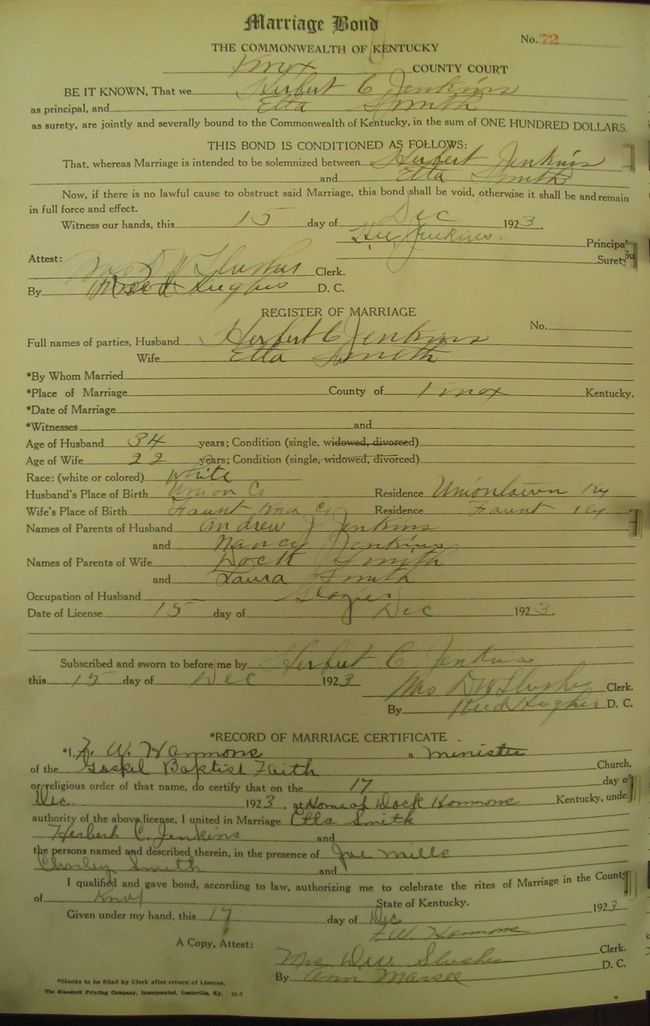 Marriage Bond
No. 72
THE COMMONWEALTH OF KENTUCKY
Knox COUNTY COURT
BE IT KNOWN, That we Herbert C Jenkins
as principal, and Etta Smith
as surety, are jointly and severally bound to the Commonwealth of Kentucky, in the sum of ONE HUNDRED DOLLARS.
THIS BOND IS CONDITIONED AS FOLLOWS:
That, whereas Marriage is intended to be solemnized between Herbert Jenkins
and Etta Smith
Now, if there is no lawful cause to obstruct said Marriage, this bond shall be void, otherwise it shall be and remain
in full force and effect.
Witness our hands, this 15 day of Dec 1923.
Jenkins. Principal
Surety
Attest: Mrs D W Slusher Clerk.
By Hughes D. C.
REGISTER OF MARRIAGE
No.
Full names of parties, Husband Herbert C Jenkins
Wife Etta Smith
*By Whom Married
*Place of Marriage County of Knox Kentucky.
*Date of Marriage
*Witnesses and
Age of Husband 34 years; Condition (single, widowed, divorced)
Age of Wife 22 years; Condition (single, widowed, divorced)
Race: (white or colored) White
Husband's Place of Birth Union Co Residence Uniontown Ky
Wife's Place of Birth Co Residence Ky
Names of Parents of Husband Andrew J Jenkins
and Nancy Jenkins
Names of Parents of Wife Dock Smith
and Laura Smith
Occupation of Husband
Date of License 15 day of Dec 1923.
Subscribed and sworn to before me by Herbert C Jenkins
this 15 day of Dec 1923
Mrs D W Slusher Clerk.
By Hughes D. C.
*RECORD OF MARRIAGE CERTIFICATE
*I, F. W. Hammons a minister
of the Gospel Baptist Faith Church,
or religious order of that name, do certify that on the 17 day of
Dec. 1923, at Home of Dock Hammons Kentucky, under
authority of the above license, I united in Marriage Etta Smith
Herbert C. Jenkins and
the persons named and described therein, in the presence of Joe Mills
Charley Smith and
I qualified and gave bond, according to law, authorizing me to celebrate the rites of Marriage in the County
of Knox State of Kentucky.
Given under my hand, this 17 day of Dec 1923
F. W. Hammons
A Copy, Attest: Mrs D W Slusher Clerk.
By Ann Marsee D. C.
*Blanks to be filled by Clerk after return of License.
The Standard Printing Company, Incorporated, Louisville, Ky.